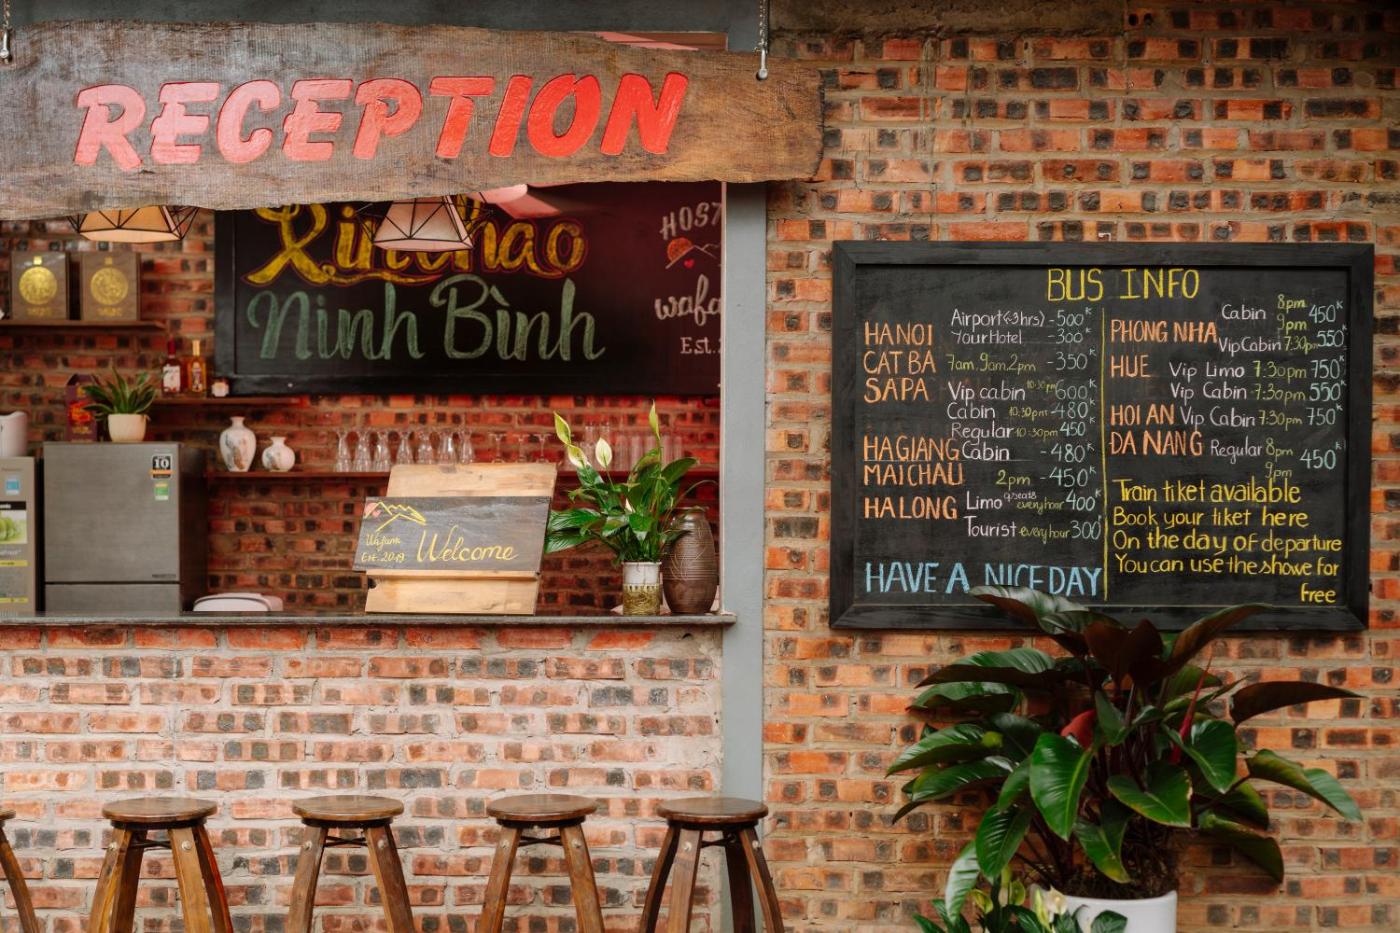 RECEPTION
Xin chao
Ninh Bình
Est.
Wafaifa
Est. 2019 Welcome
BUS INFO
HANOI Airport(~3hrs) - 500K
Your Hotel - 300K
CAT BA 7am.9am.2pm - 350K
SAPA Vip cabin 10:30pm 600K
Cabin 10:30pm - 480K
Regular 10:30pm 450K
HAGIANG Cabin - 480K
MAICHAU 2pm - 450K
HALONG Limo 9 seats every hour 400K
Tourist every hour 300K
HAVE A NICE DAY
PHONG NHA Cabin 8pm 9pm 450K
Vip Cabin 7:30pm 550K
HUE Vip Limo 7:30pm 750K
Vip Cabin 7:30pm 550K
HOI AN Vip Cabin 7:30pm 750K
DA NANG Regular 8pm 9pm 450K
Train tiket available
Book your tiket here
On the day of departure
You can use the showe for
free